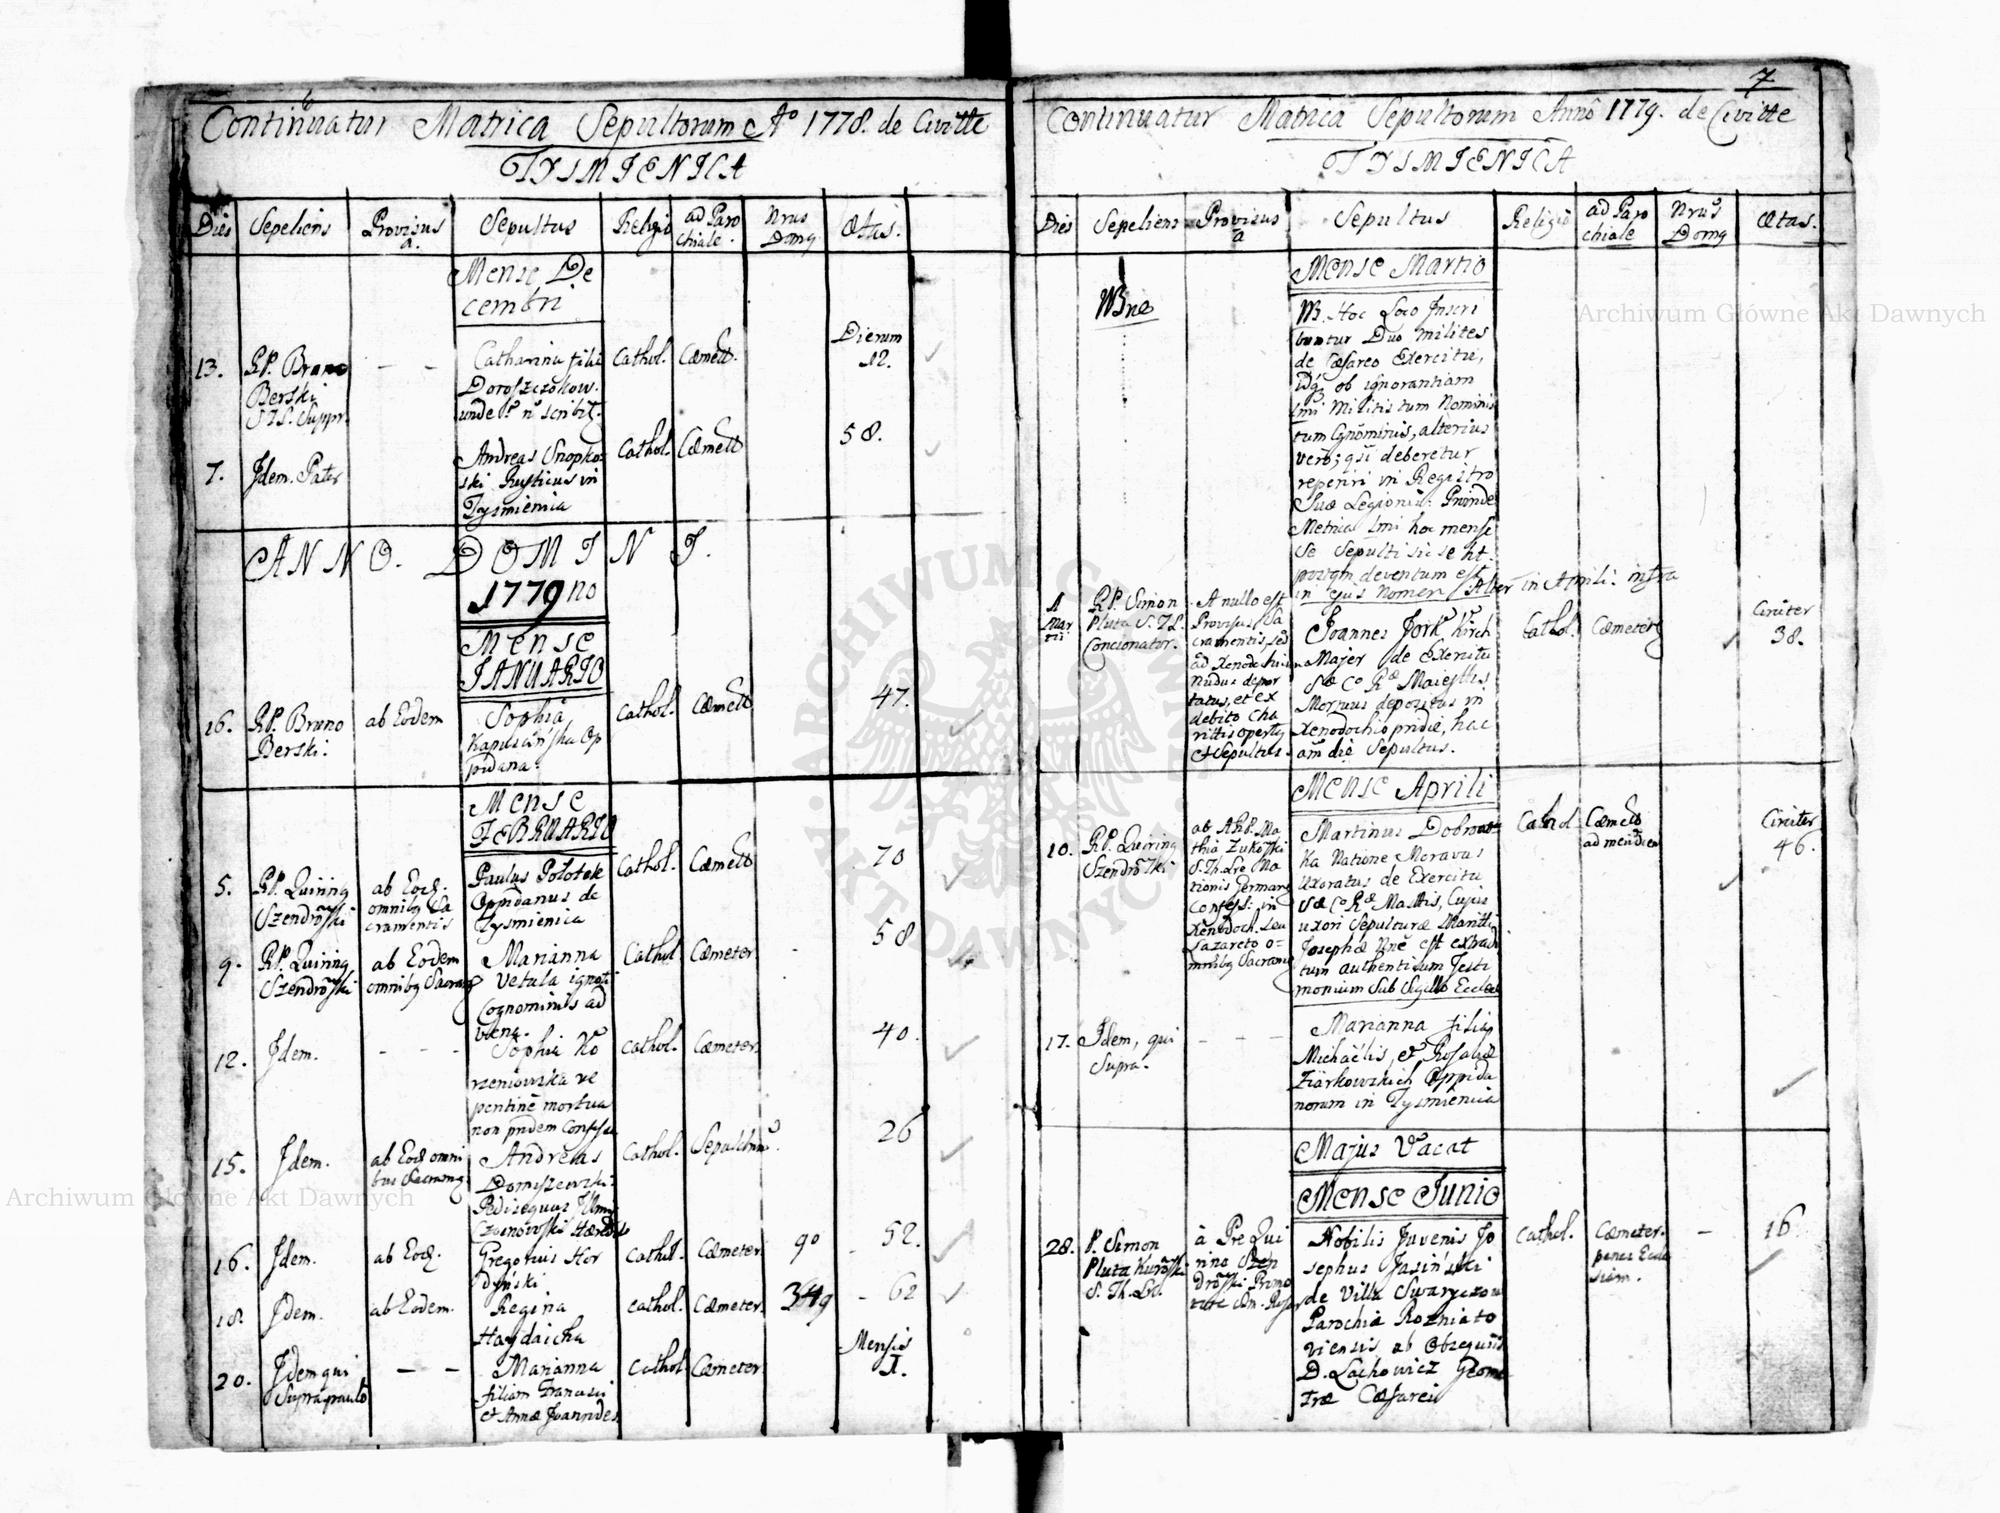 Continuatur Matrica Sepultorum Ao 1778. de Civitte
TYSMIENICA
Dies Sepeliens Provisus a. Sepultus Religio ad Parochiale. Nrus Domq Ætas.
Mense De
cembri
13. RP. Bruno
Berski
S.T.L. Suppr.
Catharina filia
Doroszczokow.
unde
Cathol. Cæmett.
Dierum
12.
7. Idem. Pater
Andreas Snopko
ski Rusticus in
Tysmienica
Cathol. Cæmett
58.
ANNO. DOMINI.
1779no
Mense
IANUARIO
16. RP. Bruno
Berski.
ab Eodem
Sophia
Kapuscinska Op
pidana.
Cathol. Cæmett
47.
Mense
FEBRUARIO
5. RP. Quiring
Szendroski
ab Eod.
omnibq Sa
cramentis
Paulus Polotek
Oppidanus de
Tysmienica
Cathol. Cæmett
70
9. RP. Quiring
Szendroski
ab Eodem
omnibq Sacramq
Marianna
Vetula ignoti
Cognominis ad
vena.
Cathol Cæmeter.
58
12. Idem.
Sophia Ko
rzeniowska re
pentine mortua
non pridem Confessa
Cathol. Cæmeter.
40.
15. Idem.
ab Eod omni
bus Sacramq
Andreas
Domiszewski.
Pedisequus Illmi
Czarnowski Hæredis
Cathol. Sepulchru.
26
16. Idem.
ab Eod.
Gregorius Hor
dynski
Cathol. Cæmeter.
90
52.
18. Idem.
ab Eodem.
Regina
Haydaicha
Cathol. Cæmeter.
62
20. Idem qui
Supra paulo
Marianna
filiam Francisci
et Annæ Joannides.
Cathol Cæmeter
Mensis
1.
7
Continuatur Matrica Sepultorum Anno 1779. de Civitte
TYSMIENICA
Dies Sepeliens Provisus a Sepultus Religio ad Parochiale Nrus Domq Ætas.
MENSE MARTIO
NBne
NB. Hoc Loco Inscri
buntur Duo Milites
de Cæsareo Exercitu,
idq ob ignorantiam
1mi Militis tum Nominis
tum Cgnominis, alterius
vero; qsi deberetur
reperiri in Registro
Suæ Legionis: Proinde
Metrica 1mi hoc mense
se Sepulti sic se ht.
postqm deventum est
in ejus Nomen Alter in Aprili: infra
1
Mar
tii
RP. Simon
Pluta S. T. L.
Concionator.
A nullo est
Provisus Sa
cramentis, sed
ad Xenodochium
Nudus depor
tatus, et ex
debito Cha
rittis opertq
et Sepultus.
Joannes York Kirch
Majer de Exercitu
Sæ Cæ Ræ Majesttis
Mortuus depositus in
Xenodochio pridie, hac
am die Sepultus.
Cathol. Cæmeterq
Circiter
38.
MENSE Aprili
10. RP. Quiring
Szendroski
ab ARP. Ma
thia Zukoski
S. Th. Lre Na
tionis Germanq
Confess: in
Xenodoch. seu
Lazareto o=
mnibq Sacramq
Martinus Dobrows
ka Natione Moravus
Uxoratus de Exercitu
Sæ Cæ Ræ Mattis, Cujus
uxori Sepulturæ Maritti
Josephæ Nne est extradi
tum Authenticum Testi
monium Sub Sigillo Eccles
Cathol Cæmett
ad mendicu
Circiter
46.
17. Idem, qui
Supra.
Marianna filia
Michaëlis, et Rosaliæ
Ziarkowskich Oppida
norum in Tysmienica
Majus Vacat
Mense Junio
28. P. Simon
Pluta
S. Th. Lr.
à Pre Qui
rino Szen
droski
Nobilis Juvenis Jo
sephus Jasiński
de Villa Swaryczow
Parochia Rozniato
viensis ab Obsequiis
D. Lachowicz Geome
træ Cæsarei
Cathol. Cæmeter.
penes Eccle
siam.
16
Archiwum Główne Akt Dawnych
Archiwum Główne Akt Dawnych
ARCHIWUM GŁÓWNE AKT DAWNYCH